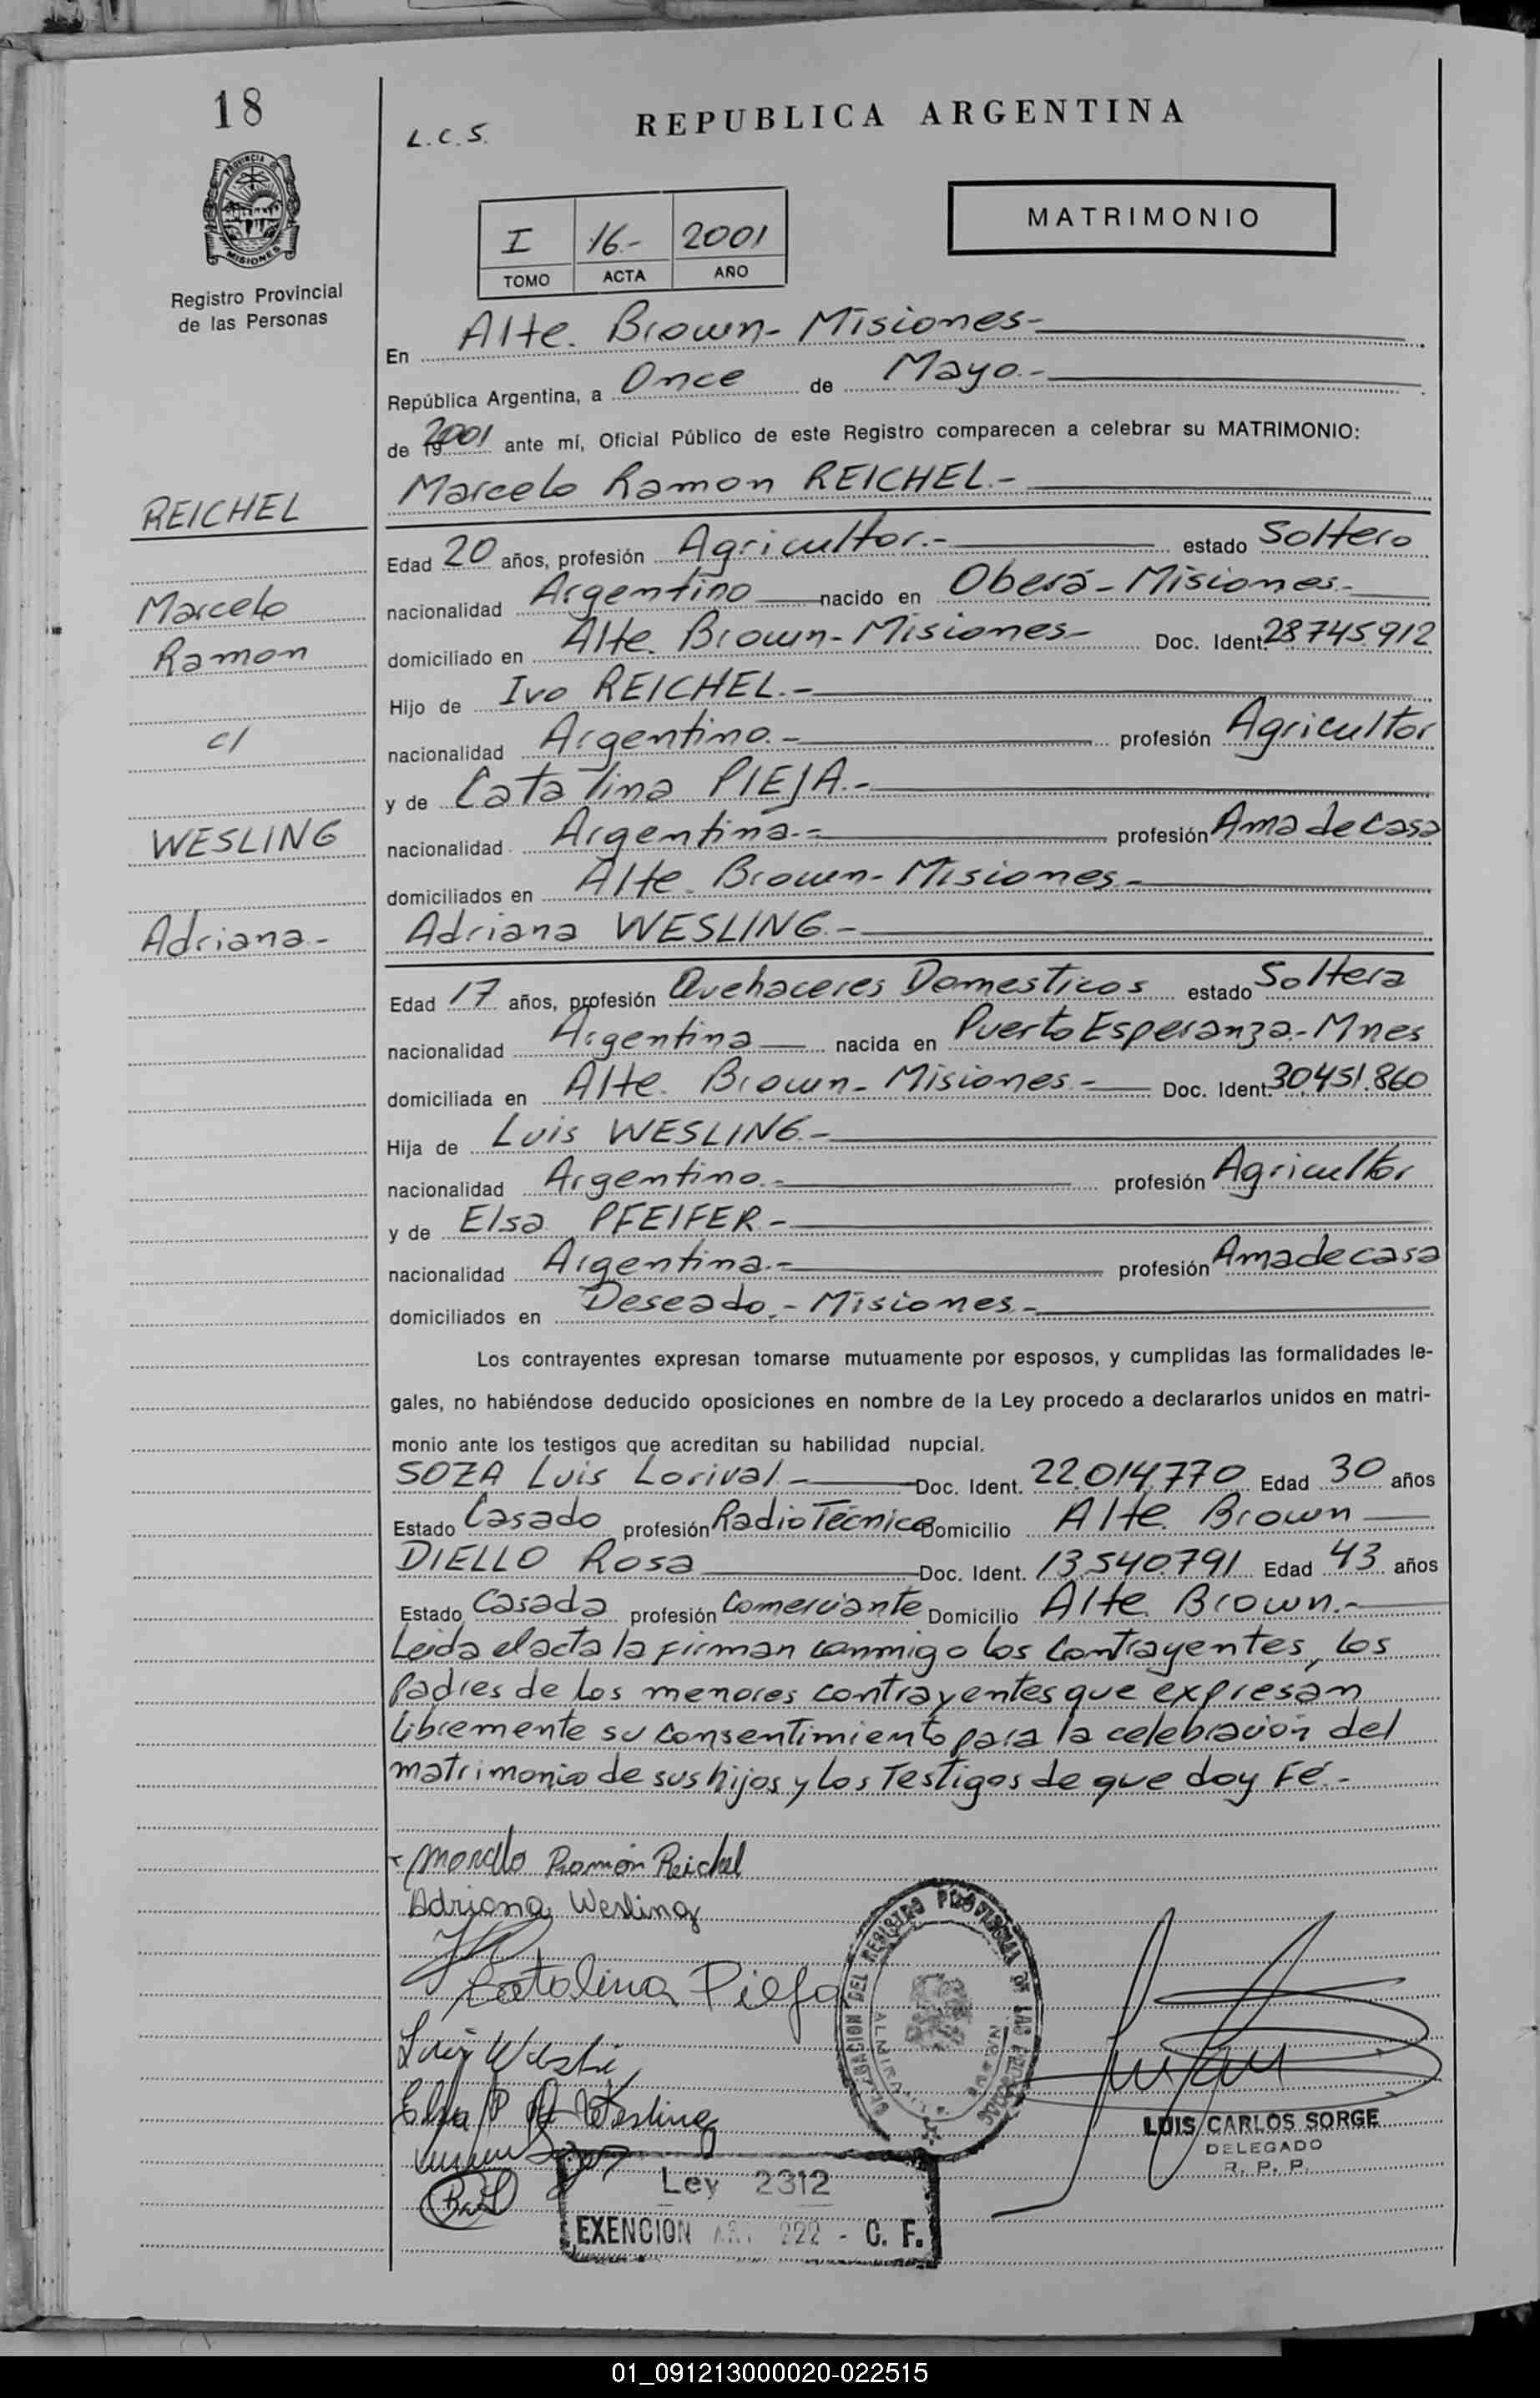 18
L.C.S.
REPUBLICA ARGENTINA
PROVINCIA DE
MISIONES
Registro Provincial
de las Personas
I 16.- 2001
TOMO ACTA AÑO
MATRIMONIO
En Alte. Brown - Misiones -
República Argentina, a Once de Mayo.-
de 2001 ante mí, Oficial Público de este Registro comparecen a celebrar su MATRIMONIO:
Marcelo Ramon REICHEL.-
REICHEL
Edad 20 años, profesión Agricultor.- estado Soltero
nacionalidad Argentino nacido en Oberá - Misiones.-
Marcelo
domiciliado en Alte. Brown - Misiones - Doc. Ident. 28.745.912
Ramon
Hijo de Ivo REICHEL.-
c/
nacionalidad Argentino.- profesión Agricultor
y de Catalina PIEJA.-
WESLING
nacionalidad Argentina.- profesión Ama de Casa
domiciliados en Alte. Brown - Misiones.-
Adriana.-
Adriana WESLING.-
Edad 17 años, profesión Quehaceres Domesticos estado Soltera
nacionalidad Argentina nacida en Puerto Esperanza.- Mnes
domiciliada en Alte. Brown - Misiones.- Doc. Ident. 30.451.860
Hija de Luis WESLING.-
nacionalidad Argentino.- profesión Agricultor
y de Elsa PFEIFER.-
nacionalidad Argentina.- profesión Ama de casa
domiciliados en Deseado.- Misiones.-
Los contrayentes expresan tomarse mutuamente por esposos, y cumplidas las formalidades le-
gales, no habiéndose deducido oposiciones en nombre de la Ley procedo a declararlos unidos en matri-
monio ante los testigos que acreditan su habilidad nupcial.
SOZA Luis Lorival.- Doc. Ident. 22.014.770 Edad 30 años
Estado Casado profesión Radio Técnico Domicilio Alte. Brown
DIELLO Rosa Doc. Ident. 13.540.791 Edad 43 años
Estado Casada profesión Comerciante Domicilio Alte. Brown.-
Leida el acta la firman conmigo los Contrayentes, los
Padres de los menores contrayentes que expresan
libremente su consentimiento para la celebración del
matrimonio de sus hijos y los Testigos de que doy Fé.-
Marcelo Ramón Reichel
Adriana Wesling
Catalina Pieja
Elsa P de Wesling
DELEGACION DEL REGISTRO PROVINCIAL DE LAS PERSONAS
ALMIRANTE BROWN
LUIS CARLOS SORGE
DELEGADO
R. P. P.
Ley 2312
EXENCION ART 222 - C. F.
01_091213000020-022515